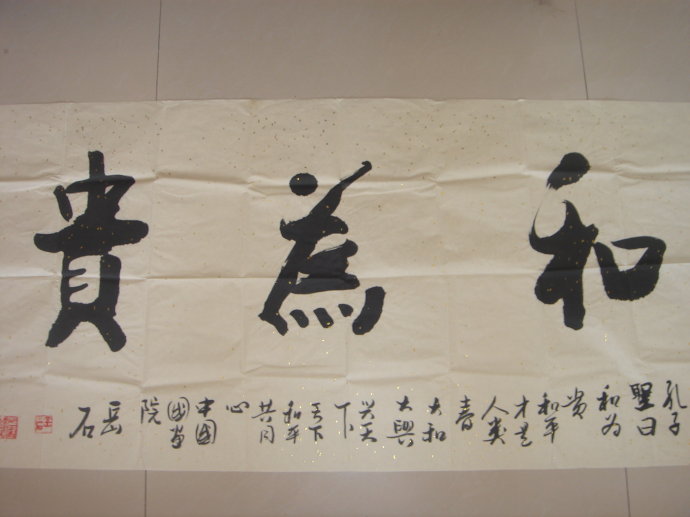 和為貴
孔子
聖曰
和为
贵
和平
才是
人类
春
大和
大興
兴天
下
天下
和平
共同
心
中國
國畫
院
岳
石